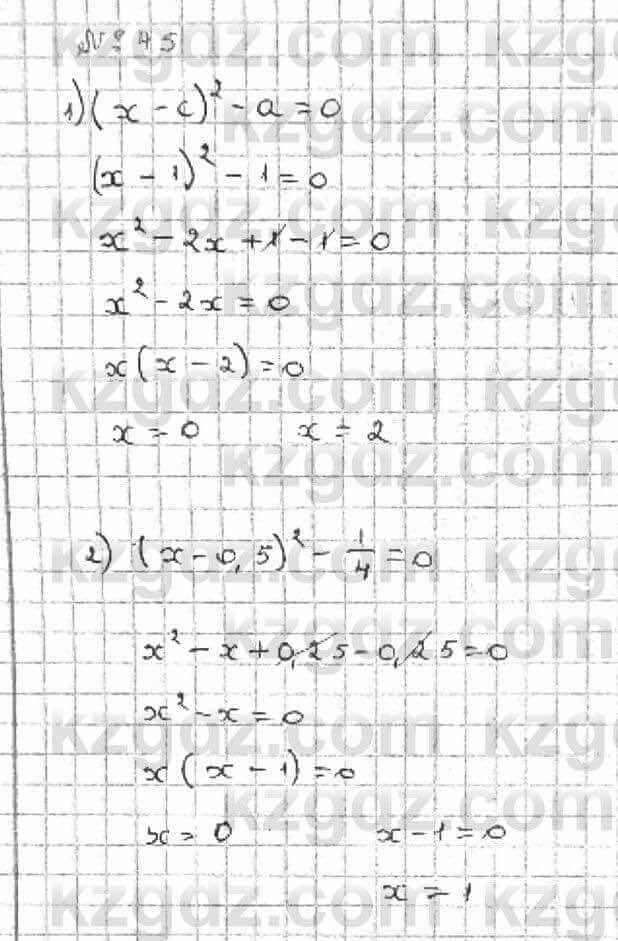 № 45
1) (x - c)² - a = 0
(x - 1)² - 1 = 0
x² - 2x + 1 - 1 = 0
x² - 2x = 0
x(x - 2) = 0
x = 0 x = 2
2) (x - 0,5)² - 1/4 = 0
x² - x + 0,25 - 0,25 = 0
x² - x = 0
x(x - 1) = 0
x = 0 x - 1 = 0
x = 1
kzgdz.com